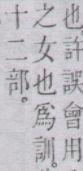 也許誤會用
之女也爲訓。
十二部。